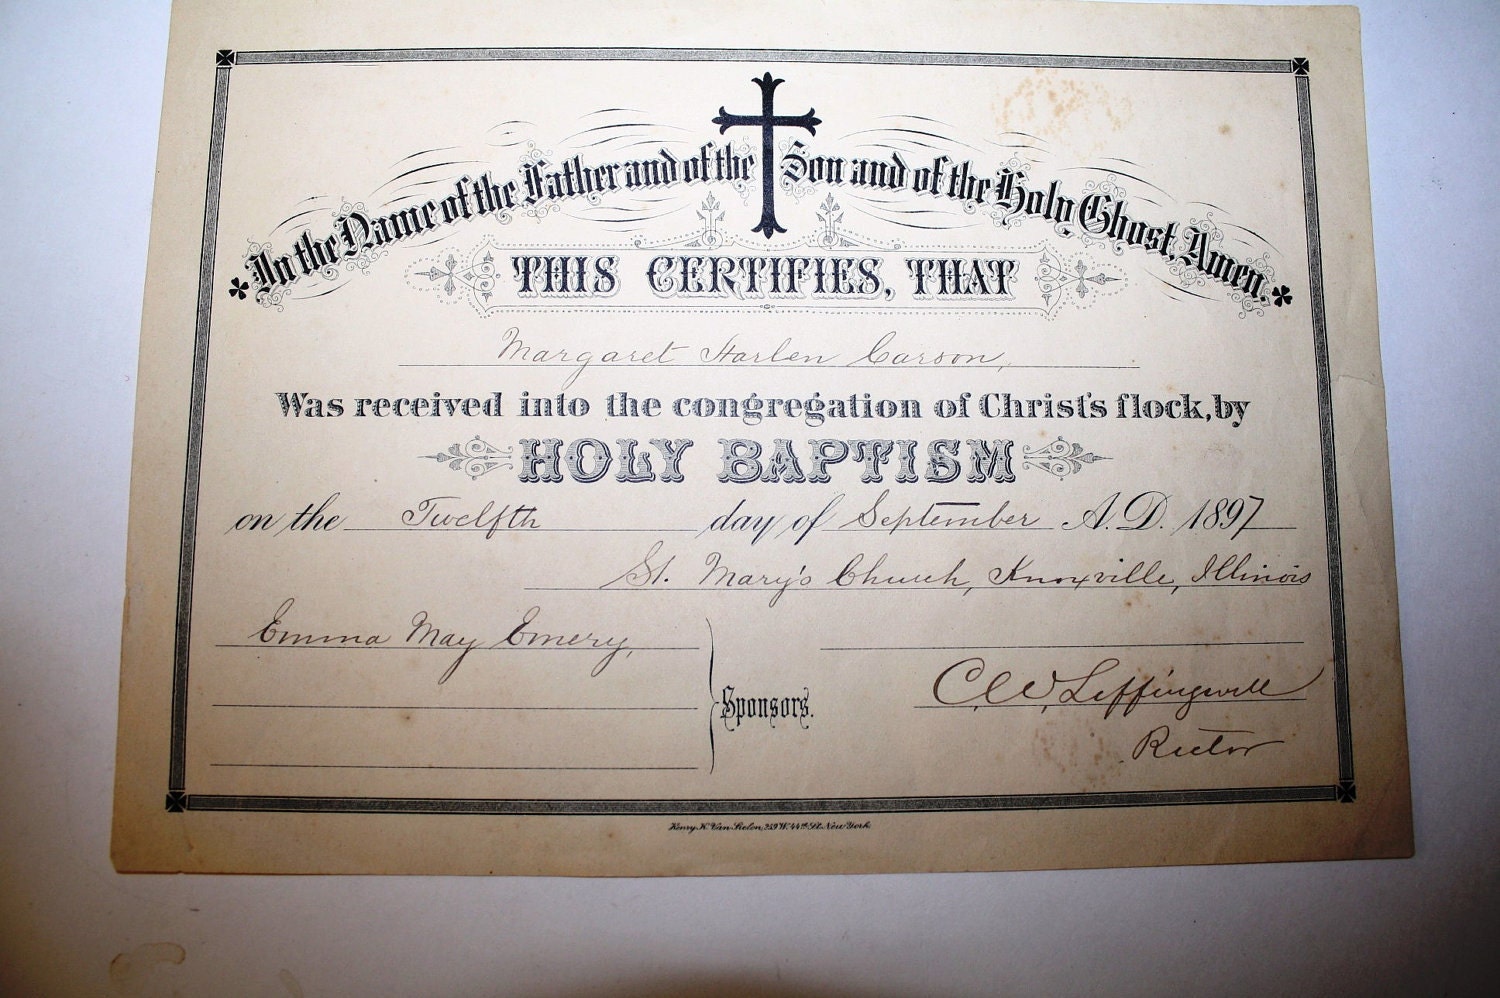 In the Name of the Father and of the Son and of the Holy Ghost, Amen.
THIS CERTIFIES, THAT
Margaret Harlen Carson,
Was received into the congregation of Christ's flock, by
HOLY BAPTISM
on the Twelfth day of September A.D. 1897
St. Mary's Church, Knoxville, Illinois
Emma May Emery,
C.W. Leffingwell
Sponsors.
Rector
Henry K. Van Siclen, 259 W. 44th St. New York